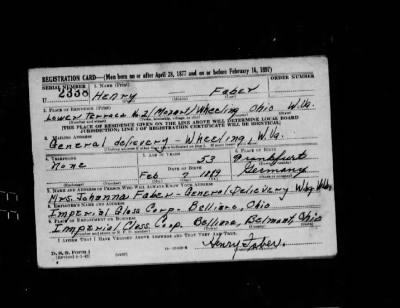 REGISTRATION CARD—(Men born on or after April 28, 1877 and on or before February 16, 1897)
SERIAL NUMBER 1. NAME (Print) ORDER NUMBER
2338 Henry Faber
(First) (Middle) (Last)
2. PLACE OF RESIDENCE (Print)
Lower Terrace No 21 (Mozart) Wheeling Ohio W.Va.
(Number and street) (Town, township, village, or city) (County) (State)
[THE PLACE OF RESIDENCE GIVEN ON THE LINE ABOVE WILL DETERMINE LOCAL BOARD
JURISDICTION; LINE 2 OF REGISTRATION CERTIFICATE WILL BE IDENTICAL]
3. MAILING ADDRESS
General delievery - Wheeling, W.Va.
4. TELEPHONE 5. AGE IN YEARS 6. PLACE OF BIRTH
None 53 Frankfurt
DATE OF BIRTH
Feb 7 1889 Germany
(Mo.) (Day) (Yr.)
7. NAME AND ADDRESS OF PERSON WHO WILL ALWAYS KNOW YOUR ADDRESS
Mrs. Johanna Faber - General Delievery Whg. W.Va.
8. EMPLOYER'S NAME AND ADDRESS
Imperial Glass Corp. - Bellaire, Ohio
9. PLACE OF EMPLOYMENT OR BUSINESS
Imperial Glass Corp. Bellaire, Belmont, Ohio
I AFFIRM THAT I HAVE VERIFIED ABOVE ANSWERS AND THAT THEY ARE TRUE.
D. S. S. Form 1
Henry Faber.